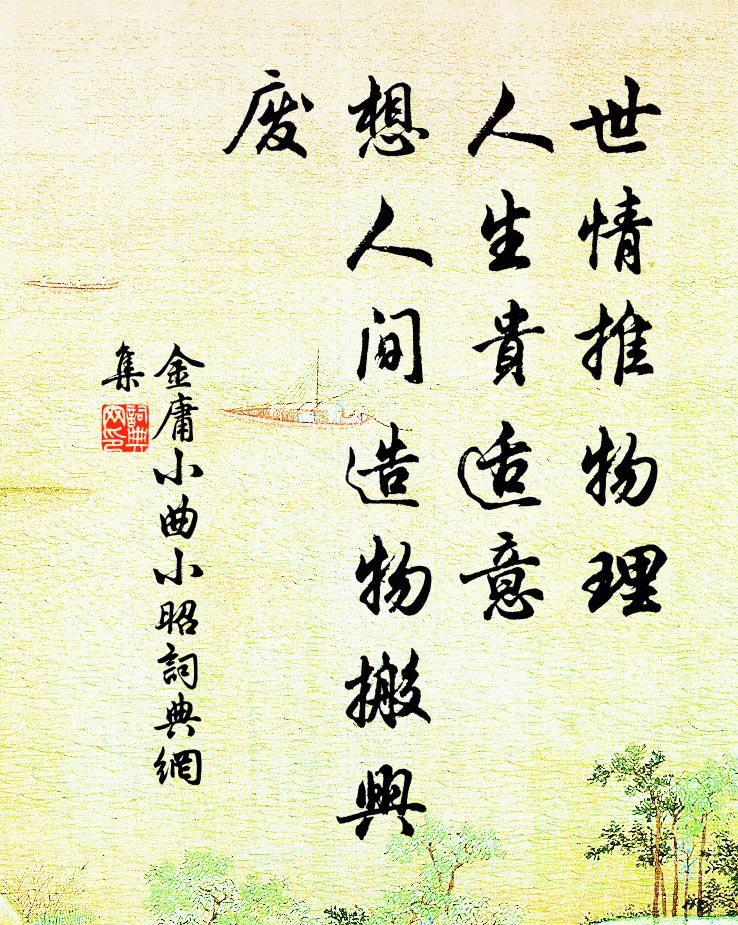 世情推物理
人生貴适意
想人間造物搬興
廢
金庸小曲小昭詞典網
集
詞典
网印